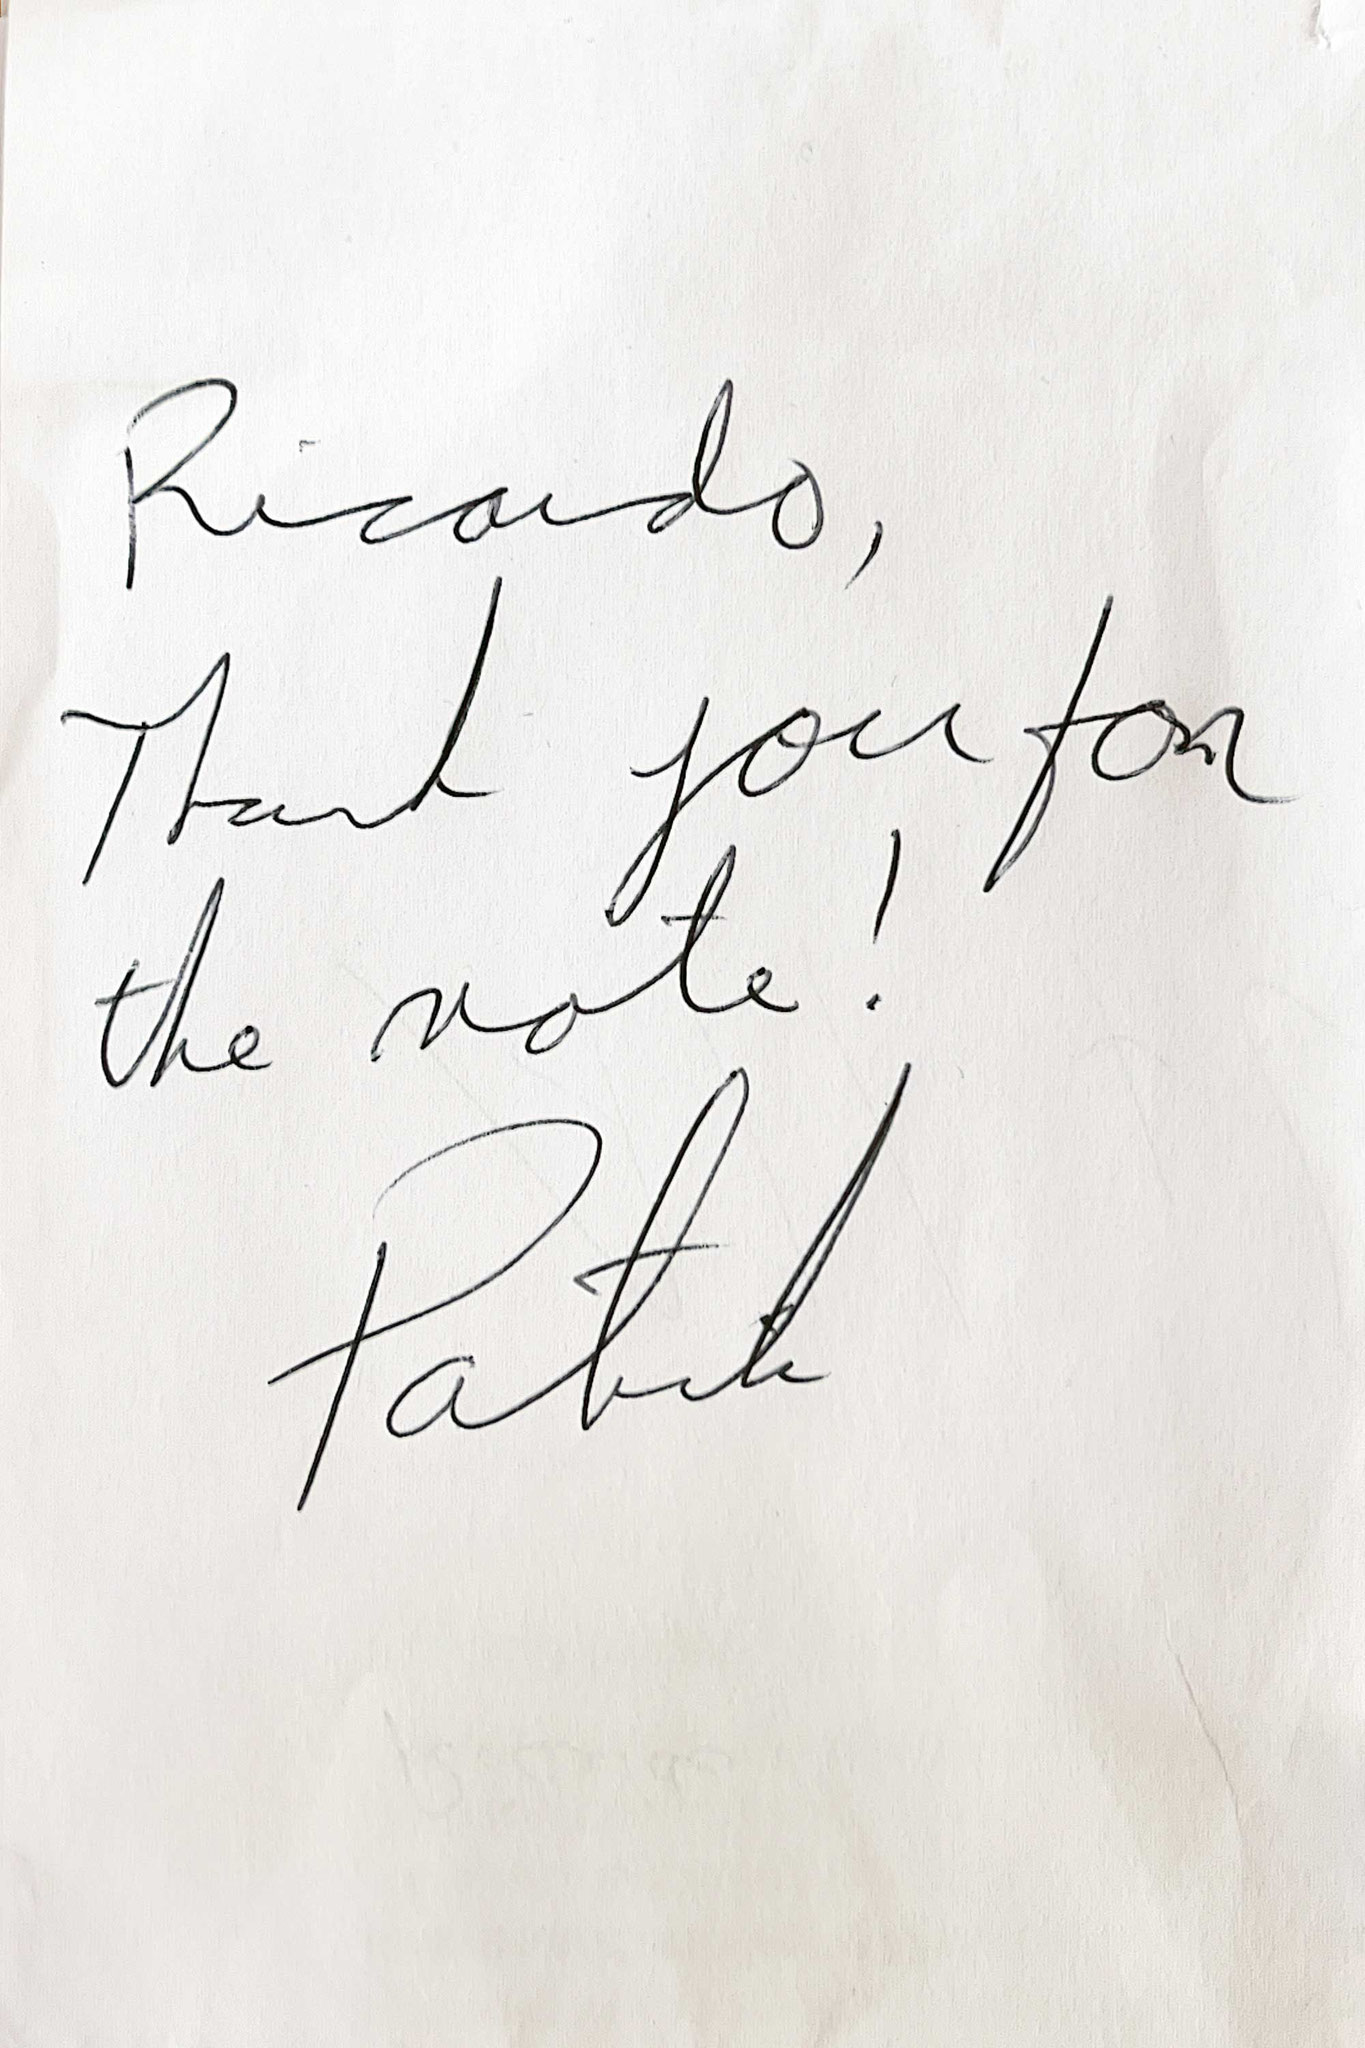 Ricardo,
Thank you for
the note!
Patrick